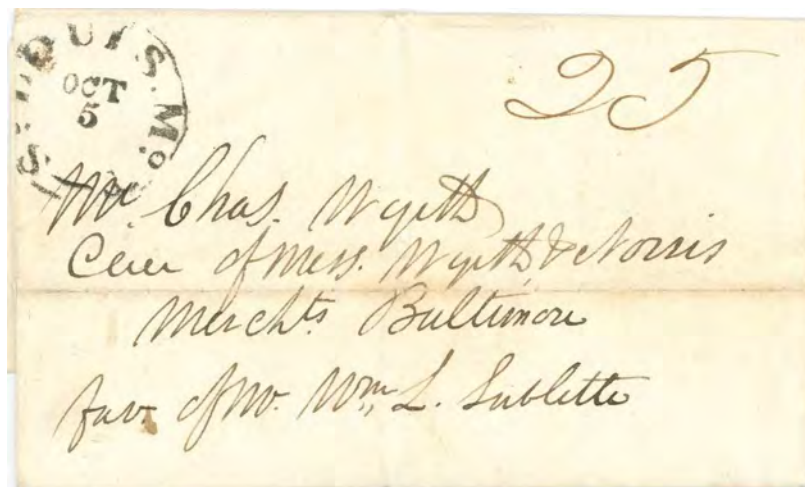 ST. LOUIS. Mo.
OCT
5
25
Mr. Chas. Wyeth
Care of Mess. Wyeth & Norris
Merchts Baltimore
fav. of Mr. Wm. L. Sublette